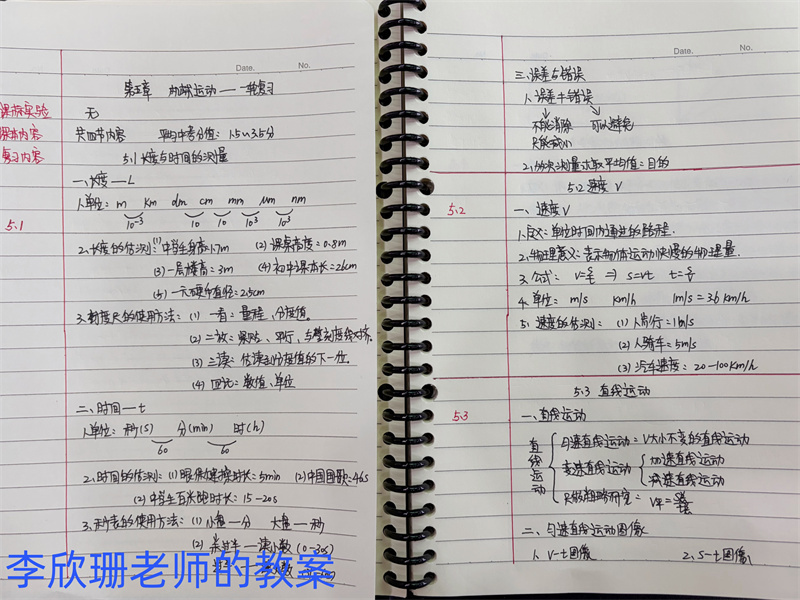 Date. No.
第五章 物体运动——一轮复习
课标实验 无
课本内容 共四节内容 平均中考分值：1.5~3.5分
复习内容 5.1 长度与时间的测量
一、长度—L
1.单位：m km dm cm mm μm nm
10⁻³ 10 10 10³ 10³
5.1
2.长度的估测：(1)中学生身高1.7m (2)课桌高度=0.8m
(3)一层楼高=3m (4)初中课本长=26cm
(5)一元硬币直径=2.5cm
3.刻度尺的使用方法：(1)一看：量程、分度值。
(2)二放：紧贴、平行、与整刻度线对齐.
(3)三读：估读到分度值的下一位.
(4)四记：数值、单位
二、时间—t
1.单位：秒(s) 分(min) 时(h)
60 60
2.时间的估测：(1)眼保健操时长=5min (2)中国国歌=46s
(2)中学生百米跑时长：15-20s
3.秒表的使用方法：(1)小盘—分 大盘—秒
(2) 读小数(0-30s)
李欣珊老师的教案
Date. No.
三、误差与错误
1.误差≠错误
不能消除 可以避免
只能减小
2.多次测量求取平均值=目的
5.2 速度 V
5.2
一、速度V
1.定义：单位时间内通过的路程.
2.物理意义：表示物体运动快慢的物理量.
3.公式： v=s/t ⇒ s=vt t=s/v
4.单位： m/s km/h 1m/s=3.6km/h
5.速度的估测：(1)人步行=1m/s
(2)人骑车=5m/s
(3)汽车速度：20-100km/h
5.3 直线运动
5.3
一、直线运动
直线运动
匀速直线运动=V大小不变的直线运动
变速直线运动
加速直线运动
减速直线运动
只能粗略研究=
二、匀速直线运动图像
1. V-t图像 2. S-t图像